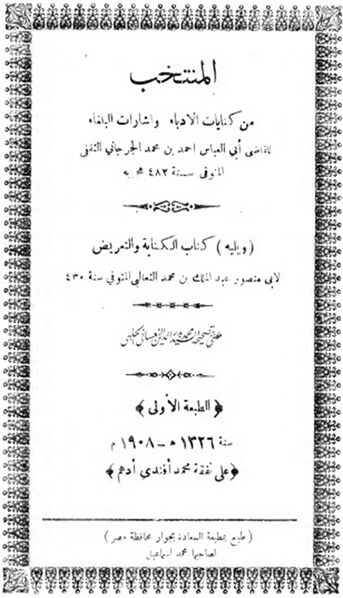 المنتخب
من كنايات الادباء واشارات البلغاء
للقاضى أبي العباس احمد بن محمد الجرجاني الثقفى
المتوفى سنة ٤٨٢ هجريه
( ويليه ) كتاب الكناية والتعريض
لابى منصور عبد الملك بن محمد الثعالبى المتوفي سنة ٤٣٠
عنى بتصحيحه السيد محمد بدر الدين النعسانى الحلبى
﴿ الطبعة الأولى ﴾
سنة ١٣٢٦ ه – ١٩٠٨ م
﴿على نفقة محمد أفندي أدهم﴾
( طبع بمطبعة السعادة بجوار محافظة مصر )
لصاحبها محمد اسماعيل